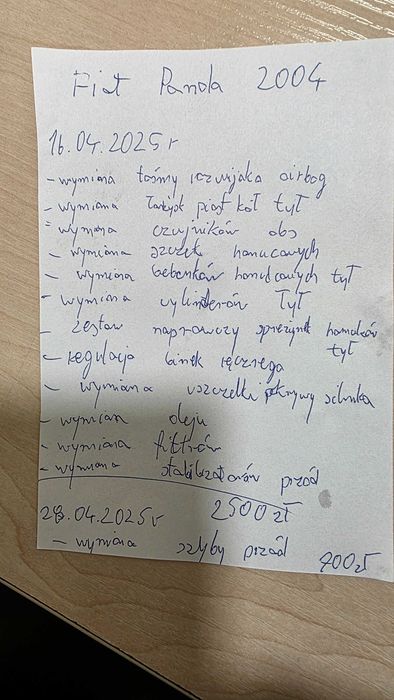 Fiat Panda 2004
16.04.2025 r
- wymiana taśmy rozwijaka airbag
- wymiana łożysk piast kół tył
- wymiana czujników abs
- wymiana szczęk hamucowych
- wymiana bębenków hamucowych tył
- wymiana cylinderów tył
- zestaw naprawczy sprężynek hamulców
tył
- regulacja linek ręcznego
- wymiana uszczelki pokrywy silnika
- wymian oleju
- wymiana filtrów
- wymiana stabilizatorów przód
2500 zł
28.04.2025 r
- wymiana szyby przód